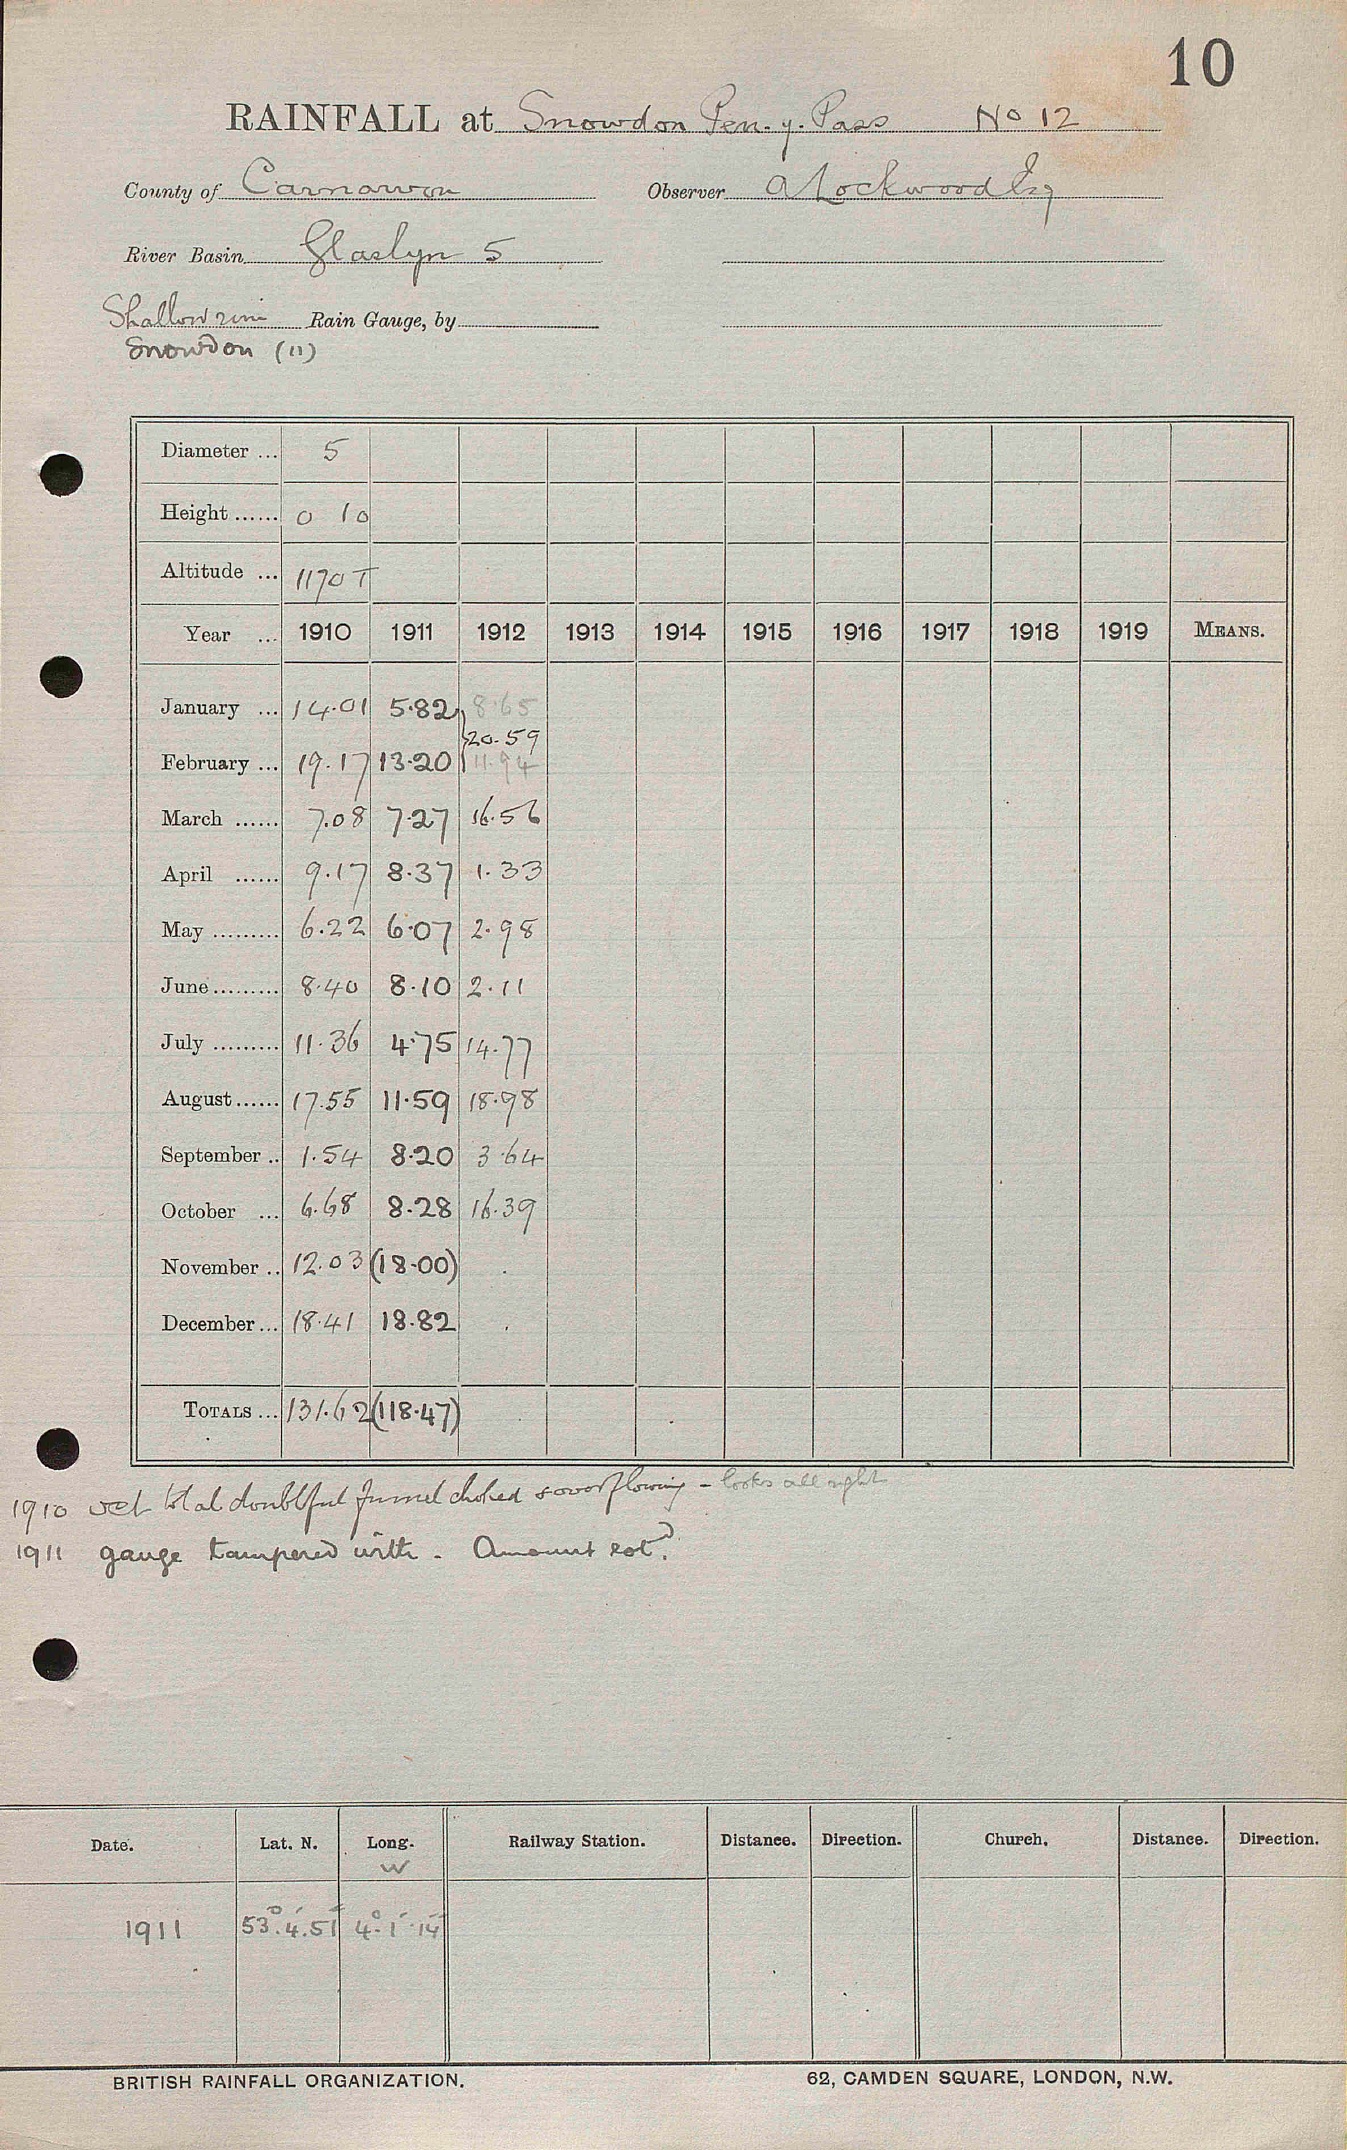 10
RAINFALL at Snowdon Pen. y. Pass No 12
County of Carnarvon Observer A Lockwood Esq
River Basin Glaslyn 5
Shallow rim Rain Gauge, by
Snowdon (11)
Diameter ... 5
Height ...... 0 10
Altitude ... 1170 T
Year ... 1910 1911 1912 1913 1914 1915 1916 1917 1918 1919 MEANS.
January ... 14.01 5.82 8.65
20.59
February ... 19.17 13.20 11.94
March ...... 7.08 7.27 16.56
April ...... 9.17 8.37 1.33
May ......... 6.22 6.07 2.98
June ......... 8.40 8.10 2.11
July ......... 11.36 4.75 14.77
August ...... 17.55 11.59 18.98
September .. 1.54 8.20 3.64
October ... 6.68 8.28 16.39
November .. 12.03 (18.00) .
December ... 18.41 18.82 .
TOTALS ... 131.62 (118.47)
1910 wet total doubtful funnel choked & overflowing - looks all right
1911 gauge tampered with. Amount estd.
Date. Lat. N. Long. Railway Station. Distance. Direction. Church. Distance. Direction.
W
1911 53° 4' 51" 4° 1' 14"
BRITISH RAINFALL ORGANIZATION. 62, CAMDEN SQUARE, LONDON, N.W.